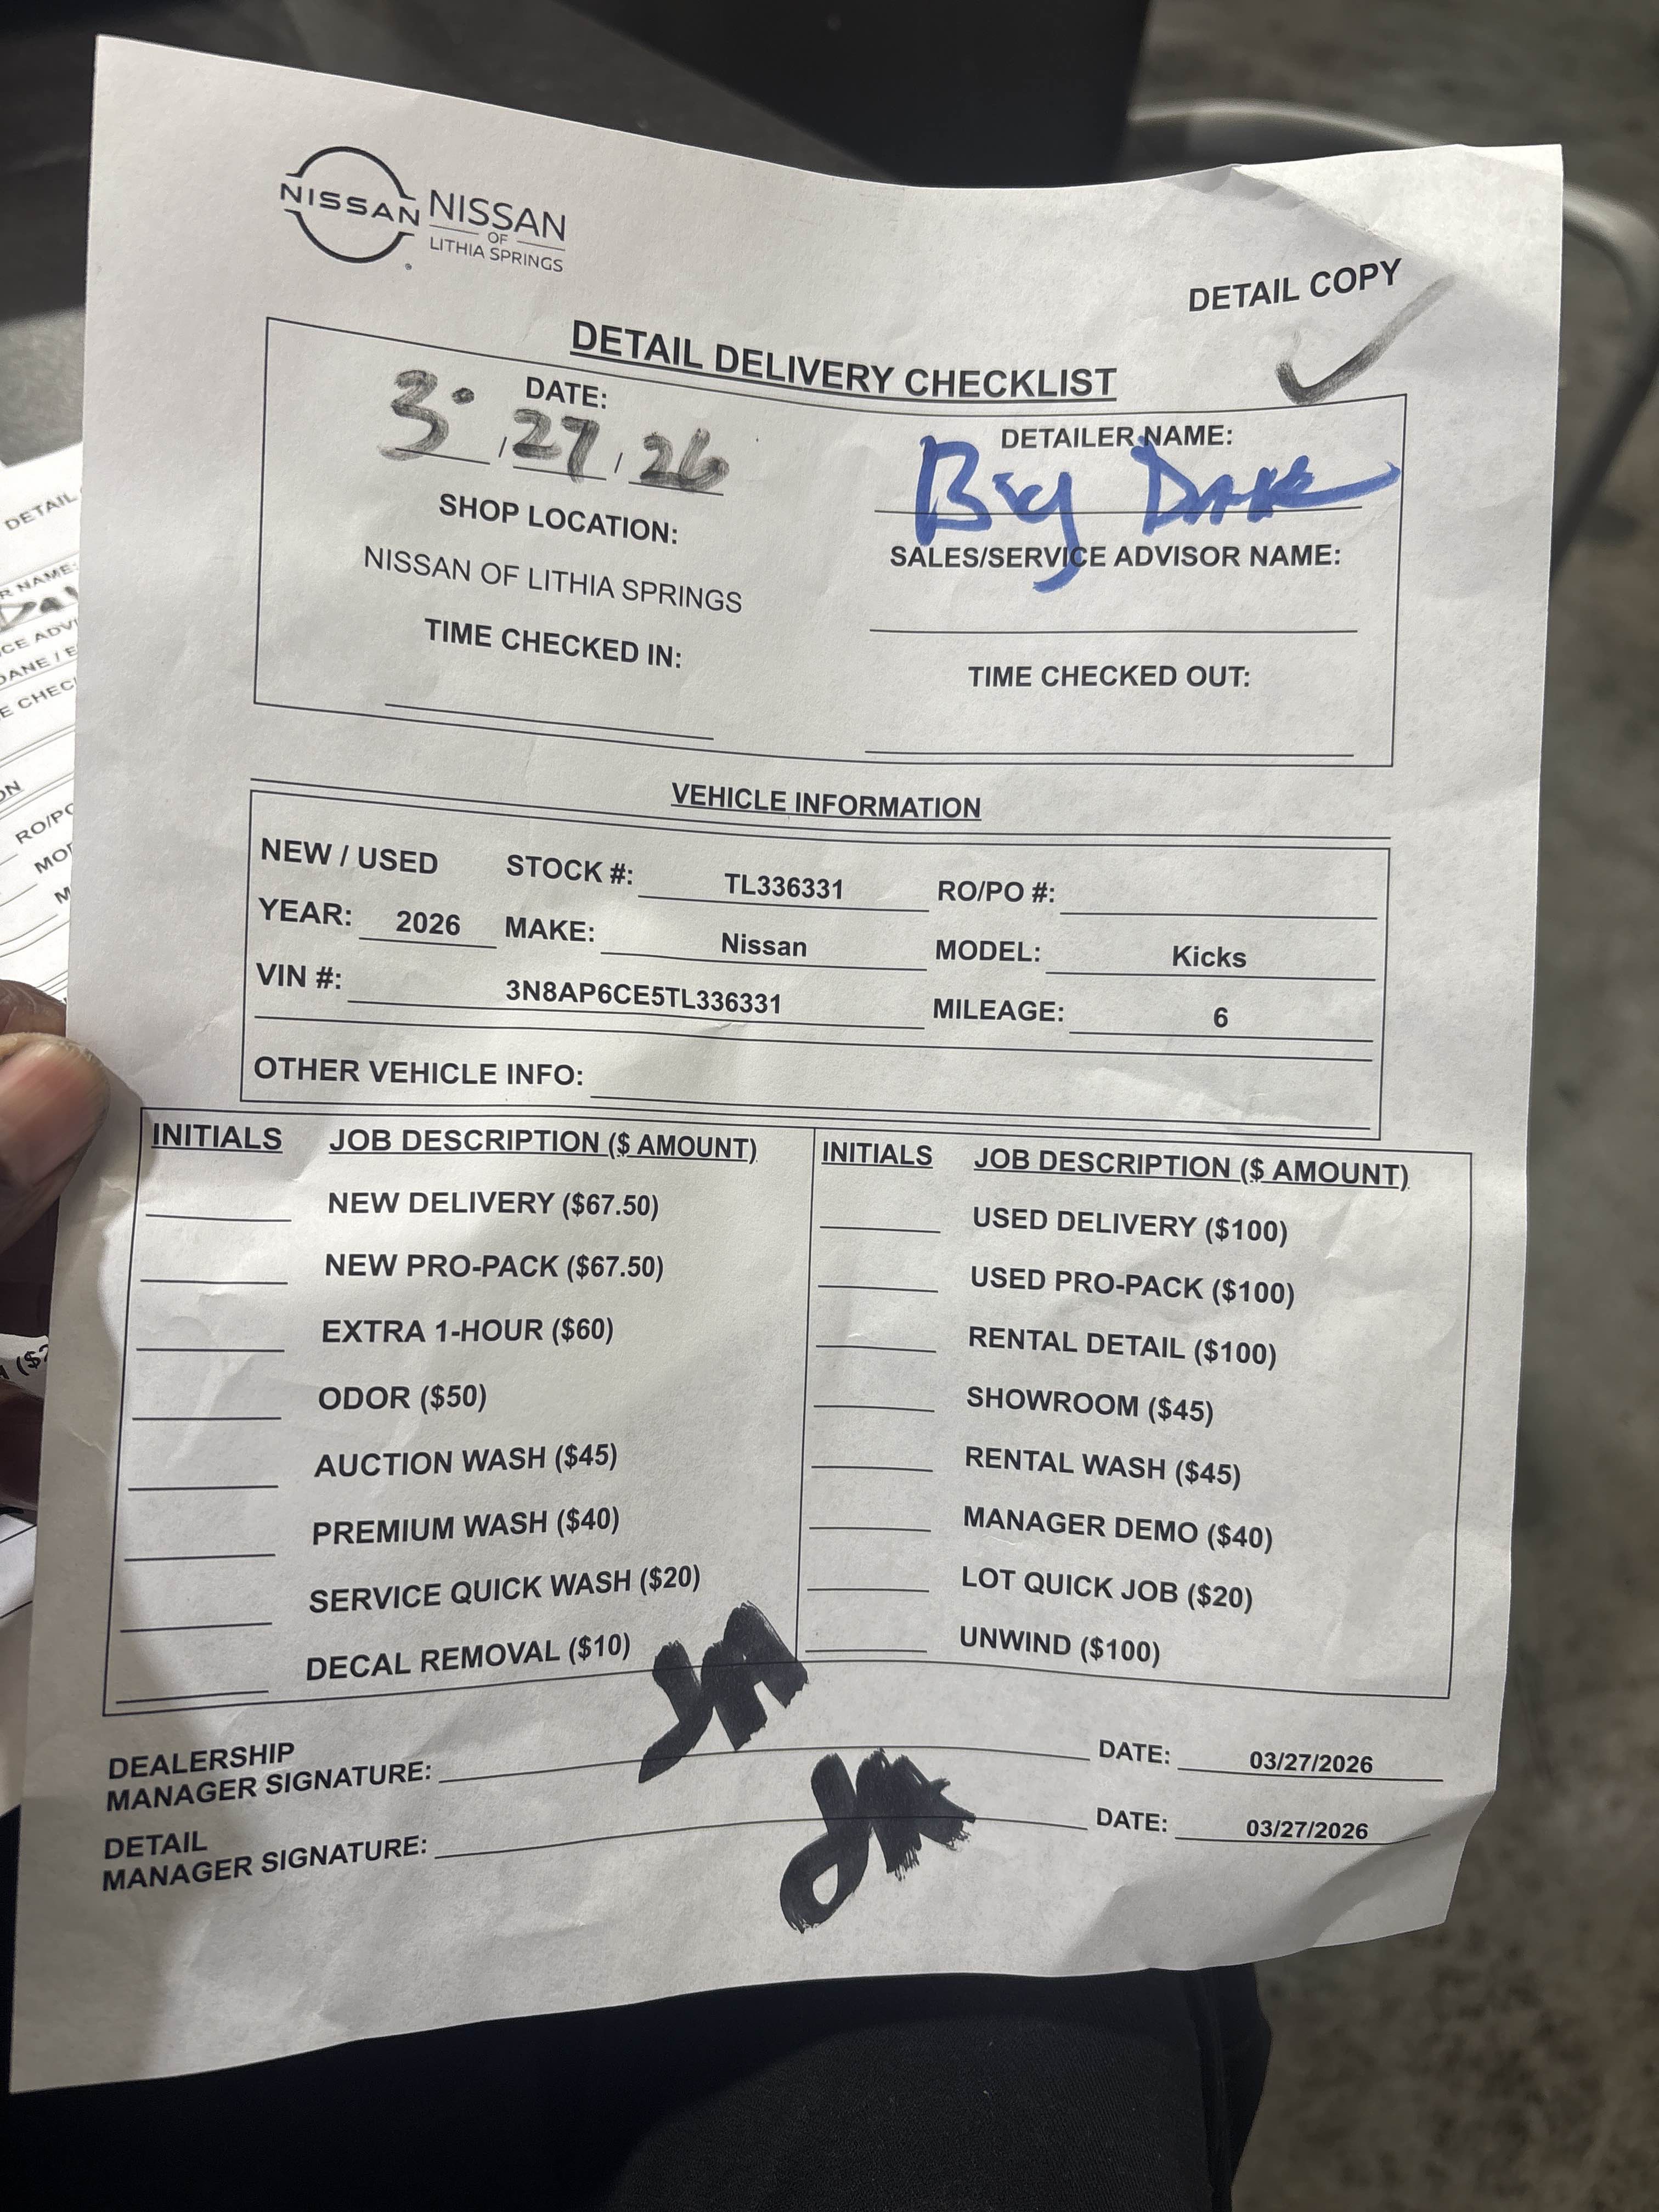 NISSAN
NISSAN
OF
LITHIA SPRINGS
DETAIL COPY
DETAIL DELIVERY CHECKLIST
DATE:
3 / 27 / 26
DETAILER NAME:
Big
SHOP LOCATION:
NISSAN OF LITHIA SPRINGS
SALES/SERVICE ADVISOR NAME:
TIME CHECKED IN:
TIME CHECKED OUT:
VEHICLE INFORMATION
NEW / USED STOCK #: TL336331 RO/PO #:
YEAR: 2026 MAKE: Nissan MODEL: Kicks
VIN #: 3N8AP6CE5TL336331 MILEAGE: 6
OTHER VEHICLE INFO:
INITIALS JOB DESCRIPTION ($ AMOUNT)
NEW DELIVERY ($67.50)
NEW PRO-PACK ($67.50)
EXTRA 1-HOUR ($60)
ODOR ($50)
AUCTION WASH ($45)
PREMIUM WASH ($40)
SERVICE QUICK WASH ($20)
DECAL REMOVAL ($10)
INITIALS JOB DESCRIPTION ($ AMOUNT)
USED DELIVERY ($100)
USED PRO-PACK ($100)
RENTAL DETAIL ($100)
SHOWROOM ($45)
RENTAL WASH ($45)
MANAGER DEMO ($40)
LOT QUICK JOB ($20)
UNWIND ($100)
DEALERSHIP
MANAGER SIGNATURE: DATE: 03/27/2026
DETAIL
MANAGER SIGNATURE: DATE: 03/27/2026
DETAIL
NAME:
RO/PO